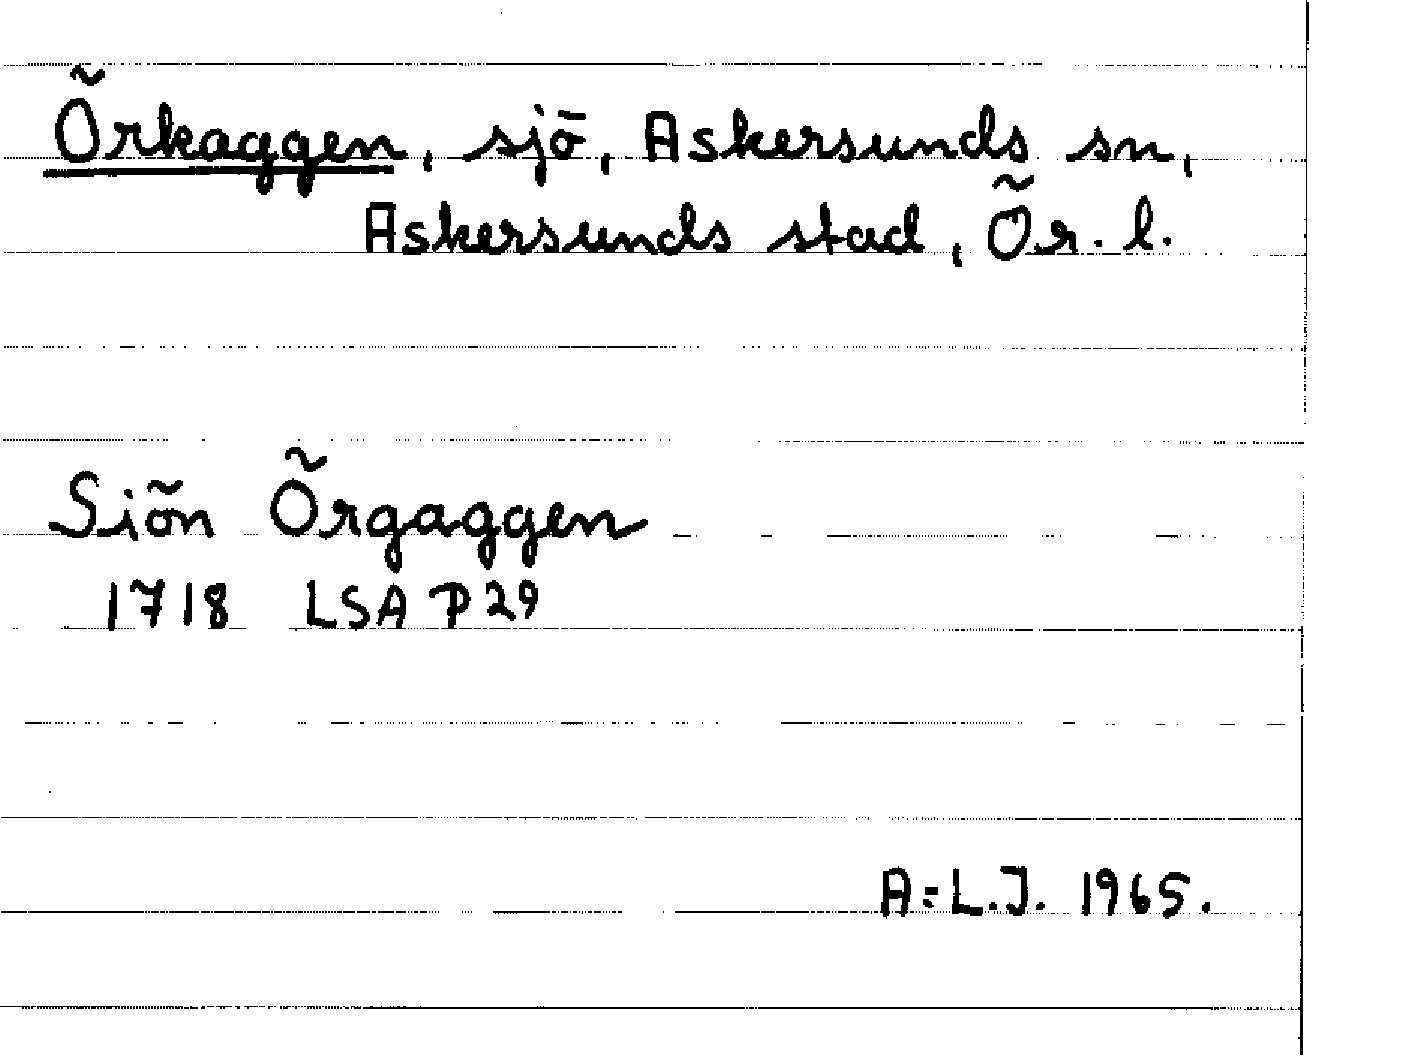 Örkaggen, sjö, Askersunds sn,
Askersunds stad, Ör. l.
Siön Örgaggen
1718 LSA P29
A:L.J. 1965.